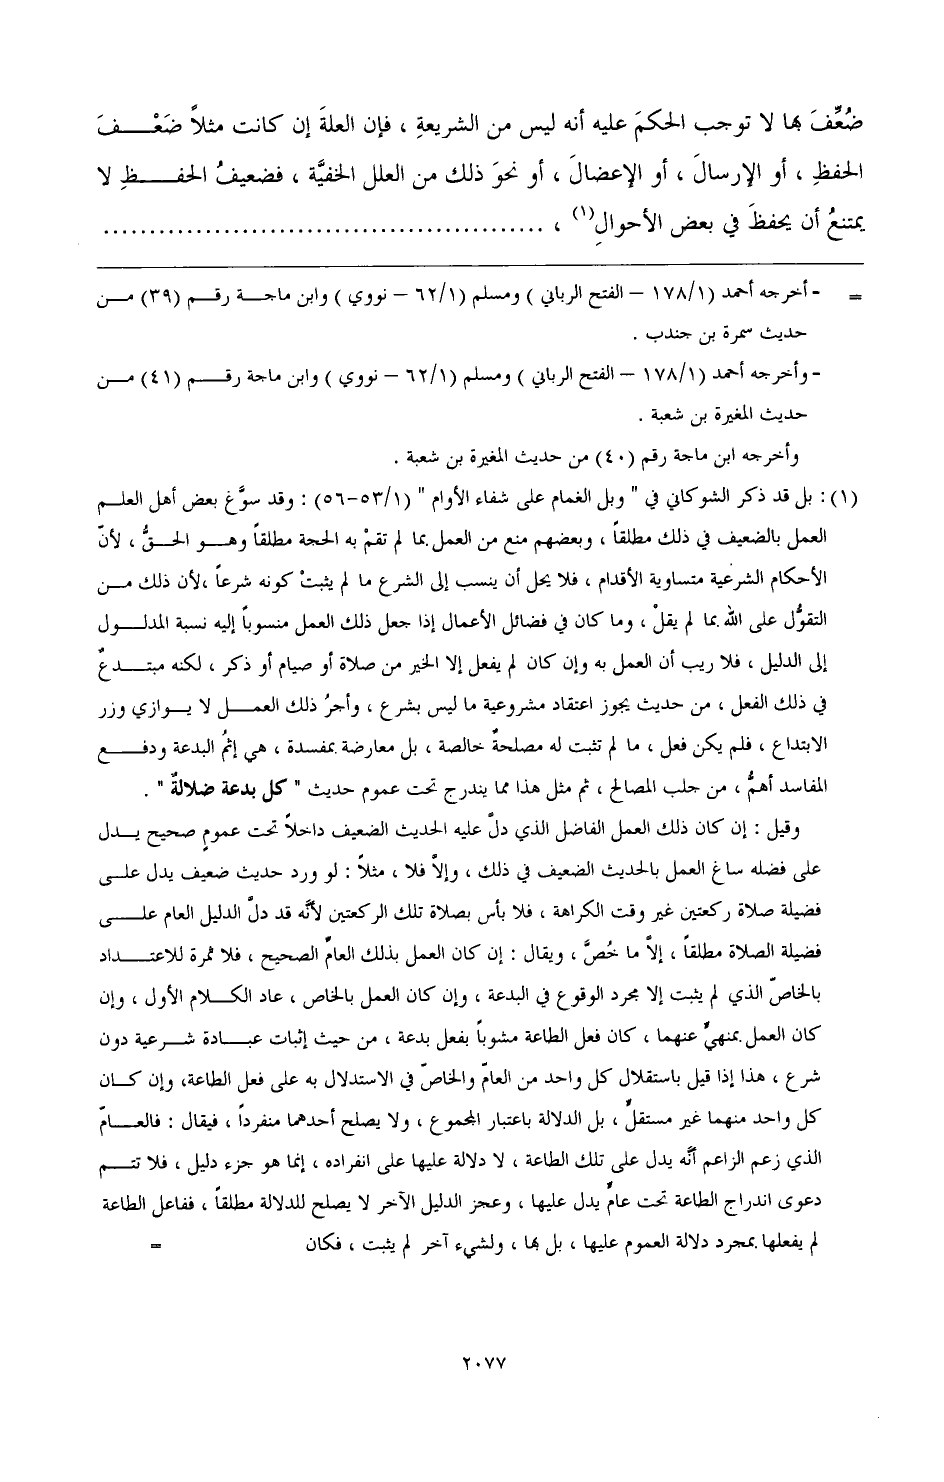 ضُعِّفَ بها لا توجب الحكمَ عليه أنه ليس من الشريعةِ ، فإن العلةَ إن كانت مثلاً ضَعْـــفَ
الحفظِ ، أو الإرسالَ ، أو الإعضالَ ، أو نحوَ ذلك من العلل الخفيَّة ، فضعيفُ الحفـــظِ لا
يمتنعُ أن يحفظَ في بعض الأحوالِ(١) ، ................................................
= - أخرجه أحمد (١٧٨/١ – الفتح الرباني ) ومسلم (٦٢/١ – نووي ) وابن ماجـة رقـم (٣٩) مـن
حديث سمرة بن جندب .
- وأخرجه أحمد (١٧٨/١ – الفتح الرباني ) ومسلم (٦٢/١ – نووي ) وابن ماجة رقـــم (٤١) مـن
حديث المغيرة بن شعبة .
وأخرجه ابن ماجة رقم (٤٠) من حديث المغيرة بن شعبة .
(١) : بل قد ذكر الشوكاني في " وبل الغمام على شفاء الأوام " (٥٣/١-٥٦) : وقد سوَّغ بعض أهل العلـم
العمل بالضعيف في ذلك مطلقاً ، وبعضهم منع من العمل بما لم تقمْ به الحجة مطلقاً وهـو الحـقُّ ، لأنّ
الأحكام الشرعية متساوية الأقدام ، فلا يحل أن ينسب إلى الشرع ما لم يثبتْ كونه شرعاً ،لأن ذلك مـن
التقوُّل على الله بما لم يقلْ ، وما كان في فضائل الأعمال إذا جعل ذلك العمل منسوباً إليه نسبة المدلـول
إلى الدليل ، فلا ريب أن العمل به وإن كان لم يفعل إلا الخير من صلاة أو صيام أو ذكر ، لكنه مبتـدعٌ
في ذلك الفعل ، من حديث يجوز اعتقاد مشروعية ما ليس بشرع ، وأجرُ ذلك العمـل لا يـوازي وزر
الابتداع ، فلم يكن فعل ، ما لم تثبت له مصلحةٌ خالصة ، بل معارضة بمفسدة ، هي إثمُ البدعة ودفـع
المفاسد أهمُّ ، من جلب المصالح ، ثم مثل هذا مما يندرج تحت عموم حديث " كل بدعة ضلالةٌ " .
وقيل : إن كان ذلك العمل الفاضل الذي دلَّ عليه الحديث الضعيف داخلاً تحت عمومٍ صحيح يـدل
على فضله ساغ العمل بالحديث الضعيف في ذلك ، وإلاَّ فلا ، مثلاً : لو ورد حديث ضعيف يدل علـى
فضيلة صلاة ركعتين غير وقت الكراهة ، فلا بأس بصلاة تلك الركعتين لأنَّه قد دلَّ الدليل العام علـى
فضيلة الصلاة مطلقاً ، إلاَّ ما خُصَّ ، ويقال : إن كان العمل بذلك العامِّ الصحيح ، فلا ثمرة للاعتـداد
بالخاصّ الذي لم يثبت إلا مجرد الوقوع في البدعة ، وإن كان العمل بالخاص ، عاد الكـلام الأول ، وإن
كان العمل بمنهيٍّ عنهما ، كان فعل الطاعة مشوباً بفعل بدعة ، من حيث إثبات عبـادة شـرعية دون
شرع ، هذا إذا قيل باستقلال كل واحد من العامّ والخاصّ في الاستدلال به على فعل الطاعة، وإن كـان
كل واحد منهما غير مستقلٍّ ، بل الدلالة باعتبار المجموع ، ولا يصلح أحدهما منفرداً ، فيقال : فالعـامّ
الذي زعم الزاعم أنَّه يدل على تلك الطاعة ، لا دلالة عليها على انفراده ، إنما هو جزء دليل ، فلا تتـم
دعوى اندراج الطاعة تحت عامٍّ يدل عليها ، وعجز الدليل الآخر لا يصلح للدلالة مطلقاً ، ففاعل الطاعة
لم يفعلها بمجرد دلالة العموم عليها ، بل بها ، ولشيء آخر لم يثبت ، فكان =
٢٠٧٧